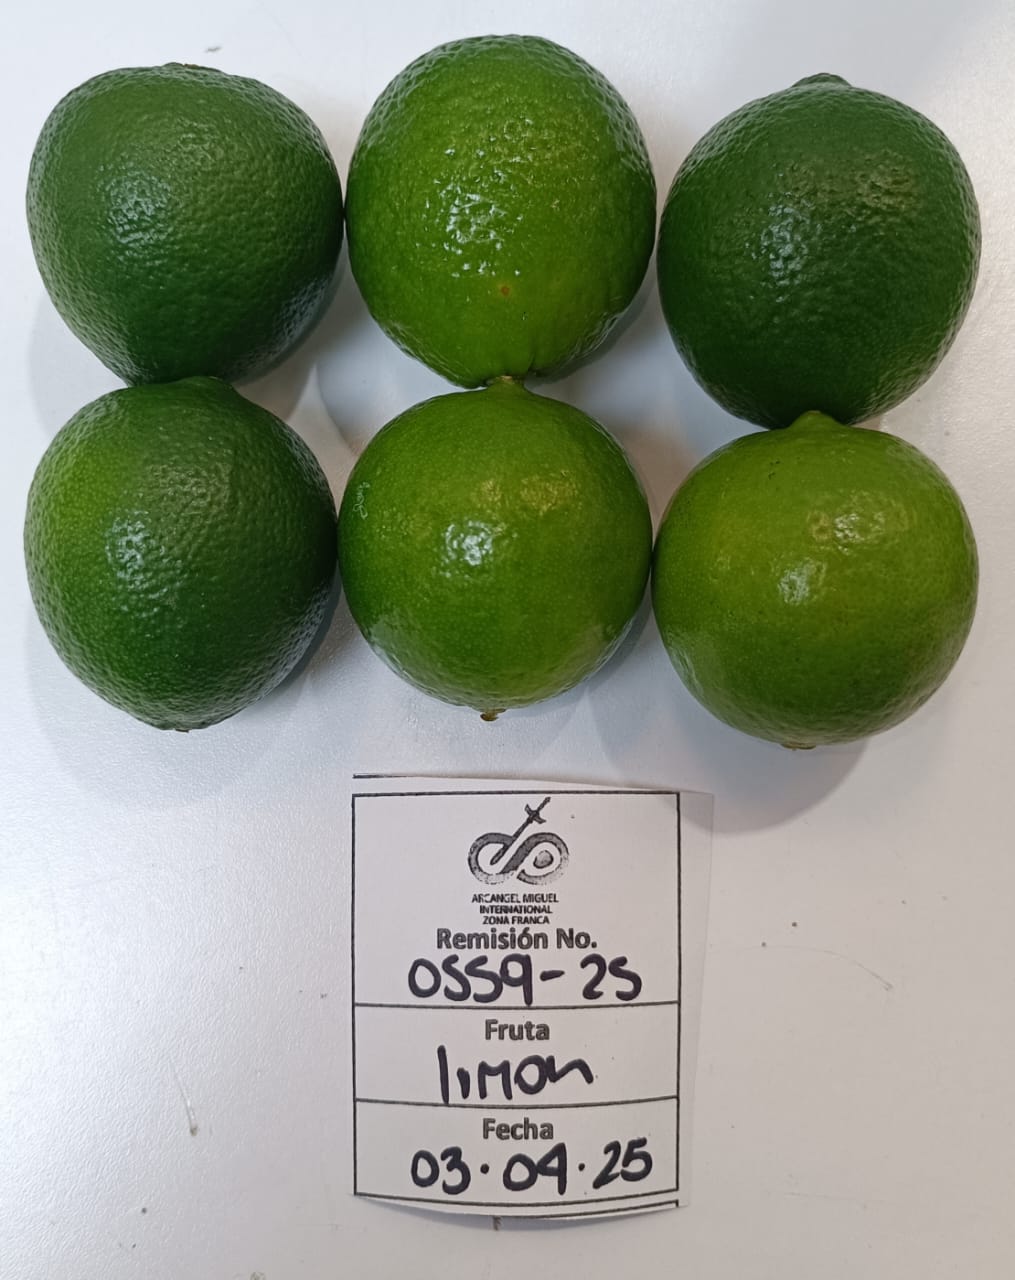 ARCANGEL MIGUEL
INTERNATIONAL
ZONA FRANCA
Remisión No.
0559-25
Fruta
limon
Fecha
03.04.25